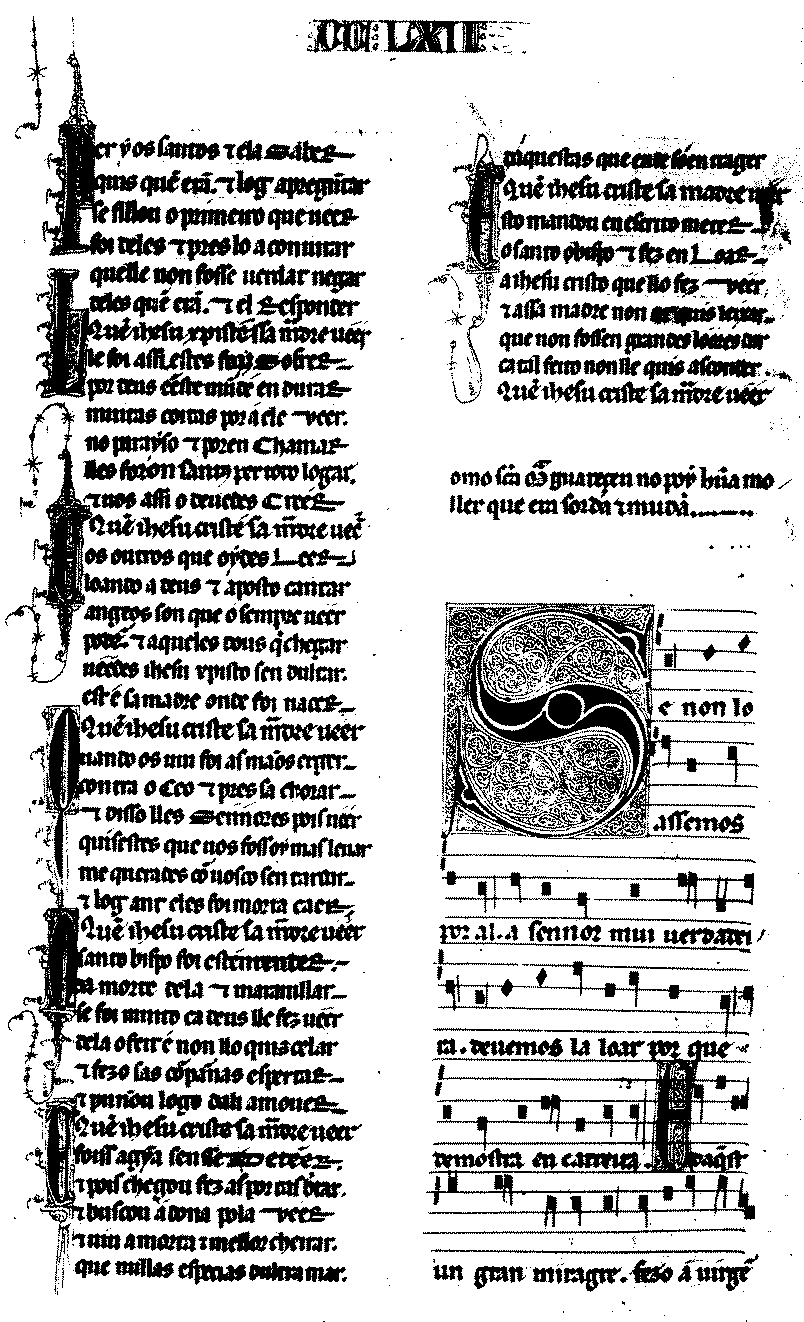 CCLXII
er os santos τ ela
quis quē erā. τ log apregūtar
se fillou o primeiro que
foi deles τ pres lo a contar
quelle non fosse uerdar negar
deles quē erā. τ el Responder
Quē ihesu xpisto ssa mr̄e ueer
le foi assi estes
por deus este mūdo en durar
muitas coitas por ele ueer.
no parayso τ poren Chamar
lles foron santos per todo logar.
τ uos assi o deuedes Creer
Quē ihesu criste sa mr̄e ueer
os outros que oydes Leer
loando a deus τ aposto cantar
angeos son que o sempre ueer
poden τ aqueles dous q̄ chegar
ueedes ihesu xpisto sen dultar.
est é sa madre onde foi nacer
Quē ihesu criste sa mr̄e ueer
uando os uiu foi as maos erger
contra o Ceo τ pres sa chorar
τ disso lles Sennores pois uer
quisestes que uos fosse mas leuar
me querades cō uosco sen tardar
τ log ant eles foi morta caer
Quē ihesu criste sa mr̄e ueer
santo bispo foi
da morte dela τ marauillar
se foi muito ca deus lle fez ueer
dela o feit e non llo quis celar
τ fezo sas cōpannas espertar
τ punnou logo dali a mouer
Quē ihesu criste sa mr̄e ueer
foiss agin̄a sen se
τ pois chegou fez as portas britar.
τ buscou a dona pola ueer
τ uiu a morta τ mellor cheirar.
que nullas especias dultramar.
daquestas que ende soen trager
Quē ihesu criste sa madre ueer
sto mandou en escrito meter
o santo obispo τ fez en Loar
a ihesu cristo que llo fez ueer
τ assa madre non
que non fossen grandes loores dar
ca tal feito non lle quis asconder.
Quē ihesu criste sa mr̄e ueer
omo sc̄a M̄ guareçeu no poy hūa mo
ller que era sorda τ muda
Se non lo
assemos
por al a sennor mui uerdadei
ra. deuemos la loar por que
demostra en carreira. E daq̄st
un gran miragre. fezo a uirgē